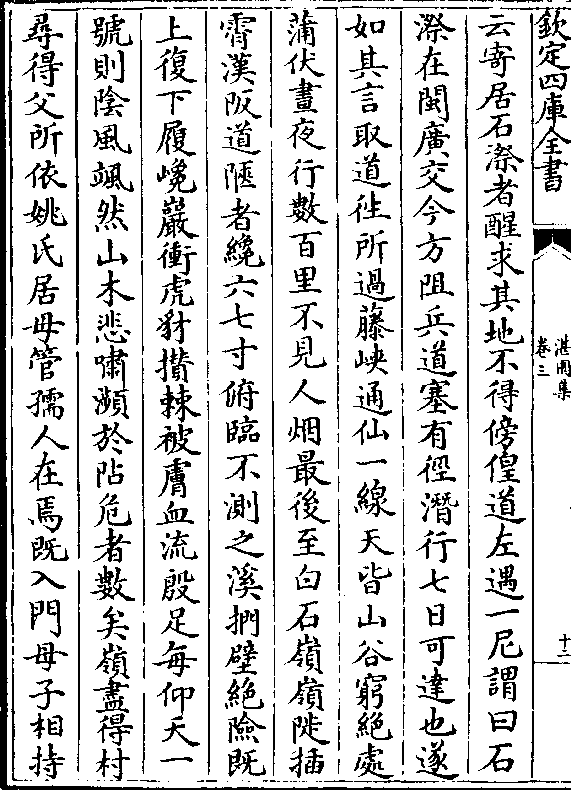 欽定四庫全書
湛園集
卷三
十二
云寄居石漈者醒求其地不得傍偟道左遇一尼謂曰石
漈在閩廣交今方阻兵道塞有徑潛行七日可達也遂
如其言取道徃所過藤峽通仙一線天皆山谷窮絶處
蒲伏晝夜行數百里不見人烟最後至白石嶺嶺陡插
霄漢阪道陿者纔六七寸俯臨不測之溪捫壁絶險既
上復下履巉巖衝虎豺攢棘被膚血流殷足每仰天一
號則陰風颯然山木悲嘯瀕於阽危者數矣嶺盡得村
尋得父所依姚氏居母管孺人在焉既入門母子相持